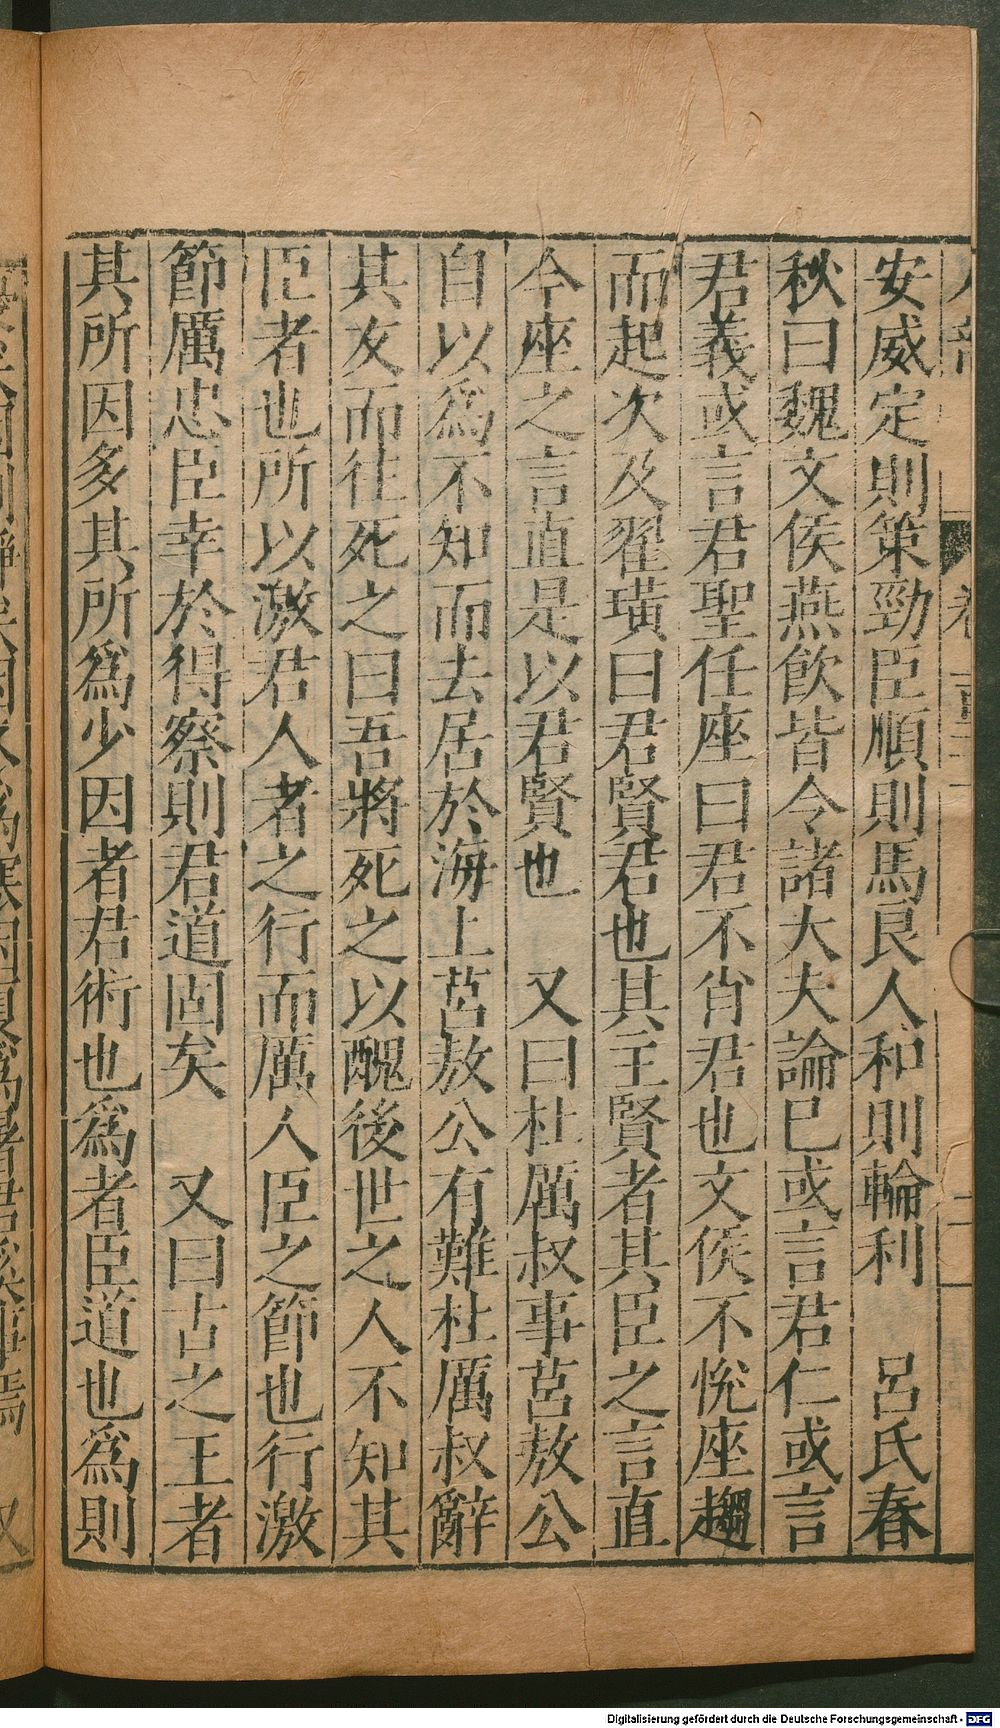 安威定則策勁臣順則馬良人和則輪利　呂氏春
秋曰魏文侯燕飲皆令諸大夫論已或言君仁或言
君義或言君聖任座曰君不肖君也文侯不悅座趨
而起次及翟璜曰君賢君也其主賢者其臣之言直
今座之言直是以君賢也　又曰杜厲叔事莒敖公
自以爲不知而去居於海上莒敖公有難杜厲叔辭
其友而往死之曰吾將死之以醜後世之人不知其
臣者也所以激君人者之行而厲人臣之節也行激
節厲忠臣幸於得察則君道固矣　又曰古之王者
其所因多其所爲少因者君術也爲者臣道也爲則
Digitalisierung gefördert durch die Deutsche Forschungsgemeinschaft - DFG